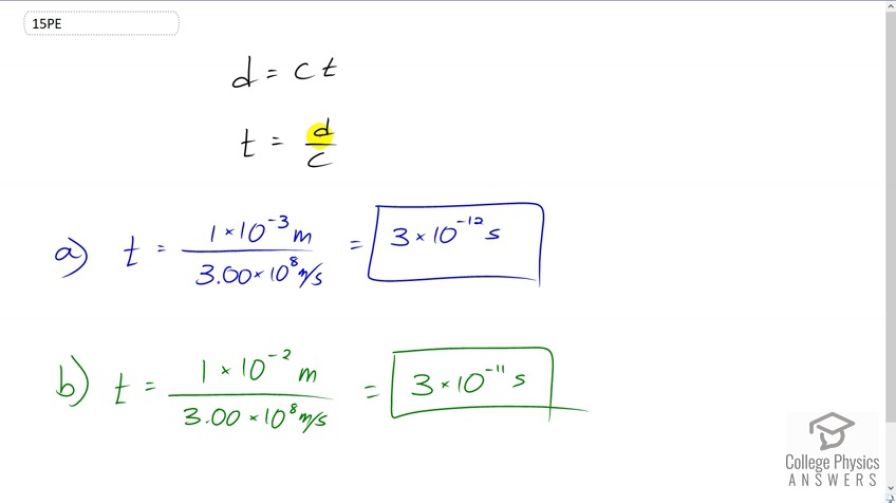 15PE
d = ct
t = d/c
a) t = 1×10⁻³ m / 3.00×10⁸ m/s = 3×10⁻¹² s
b) t = 1×10⁻² m / 3.00×10⁸ m/s = 3×10⁻¹¹ s
College Physics
ANSWERS